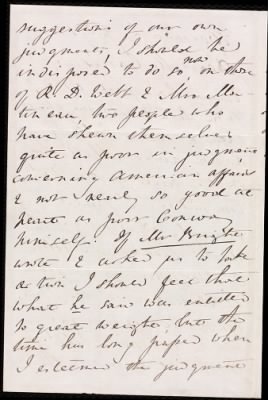 suggestions of our own
judgments, I should be
indisposed to do so now, on those
of R. D. Webb & Mrs Mar-
tineau, two people who
have shewn themselves
quite as poor in judgment
concerning American affairs
& not nearly so good at
heart as poor Conway
himself. If Mr Bright
wrote & asked us to take
action I should feel that
what he said was entitled
to great weight, but the
time has long passed when
I esteemed the judgment